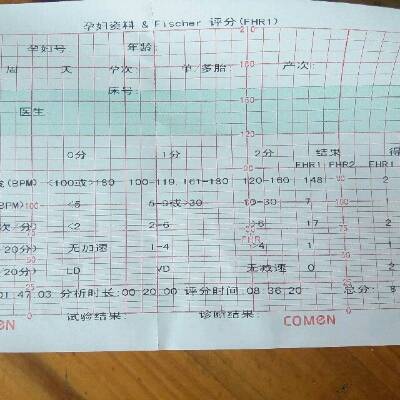 孕妇资料 & Fischer 评分(FHR1)
孕妇号 年龄:
周 天 孕次: 单/多胎: 产次:
床号:
医生
0分 1分 2分 结果 得
FHR1 FHR2 FHR1
(BPM) <100或>180 100-119,161-180 120-160 148 2
(BPM) <5 5-9或>30 10-30 7 1
次/分) <2 2-6 >6 17 2
20分) 无加速 1-4 >4 1 1
20分) LD VD 无减速 0 2
01:47:03 分析时长:00:20:00 评分时间:08:36:20 总分: 8
试验结果: 诊断结果:
COMEN